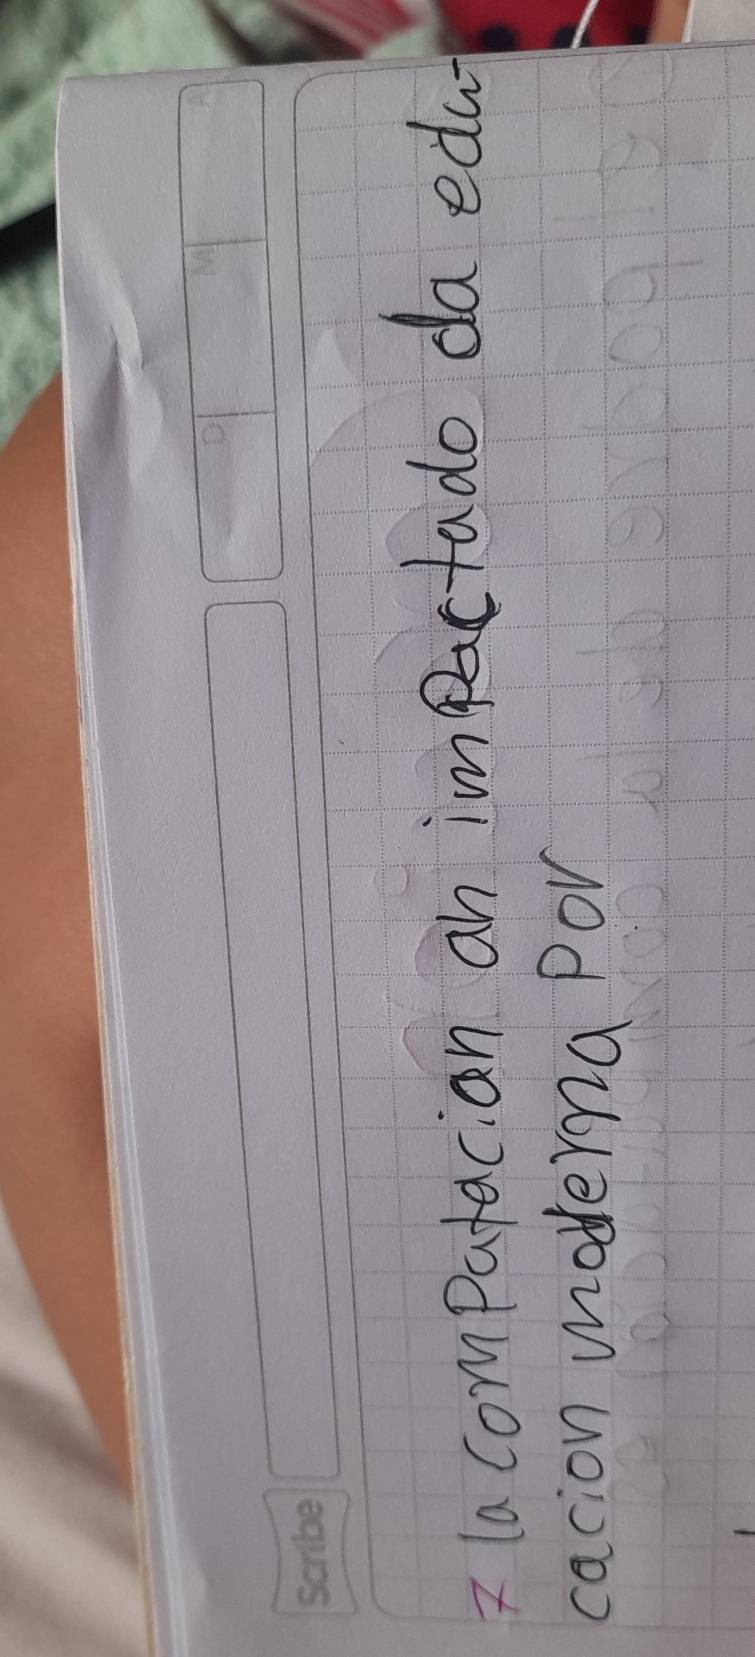 Scribe
D M A
7 la comPatacian ah imPactado da edu-
cacion moderna Por